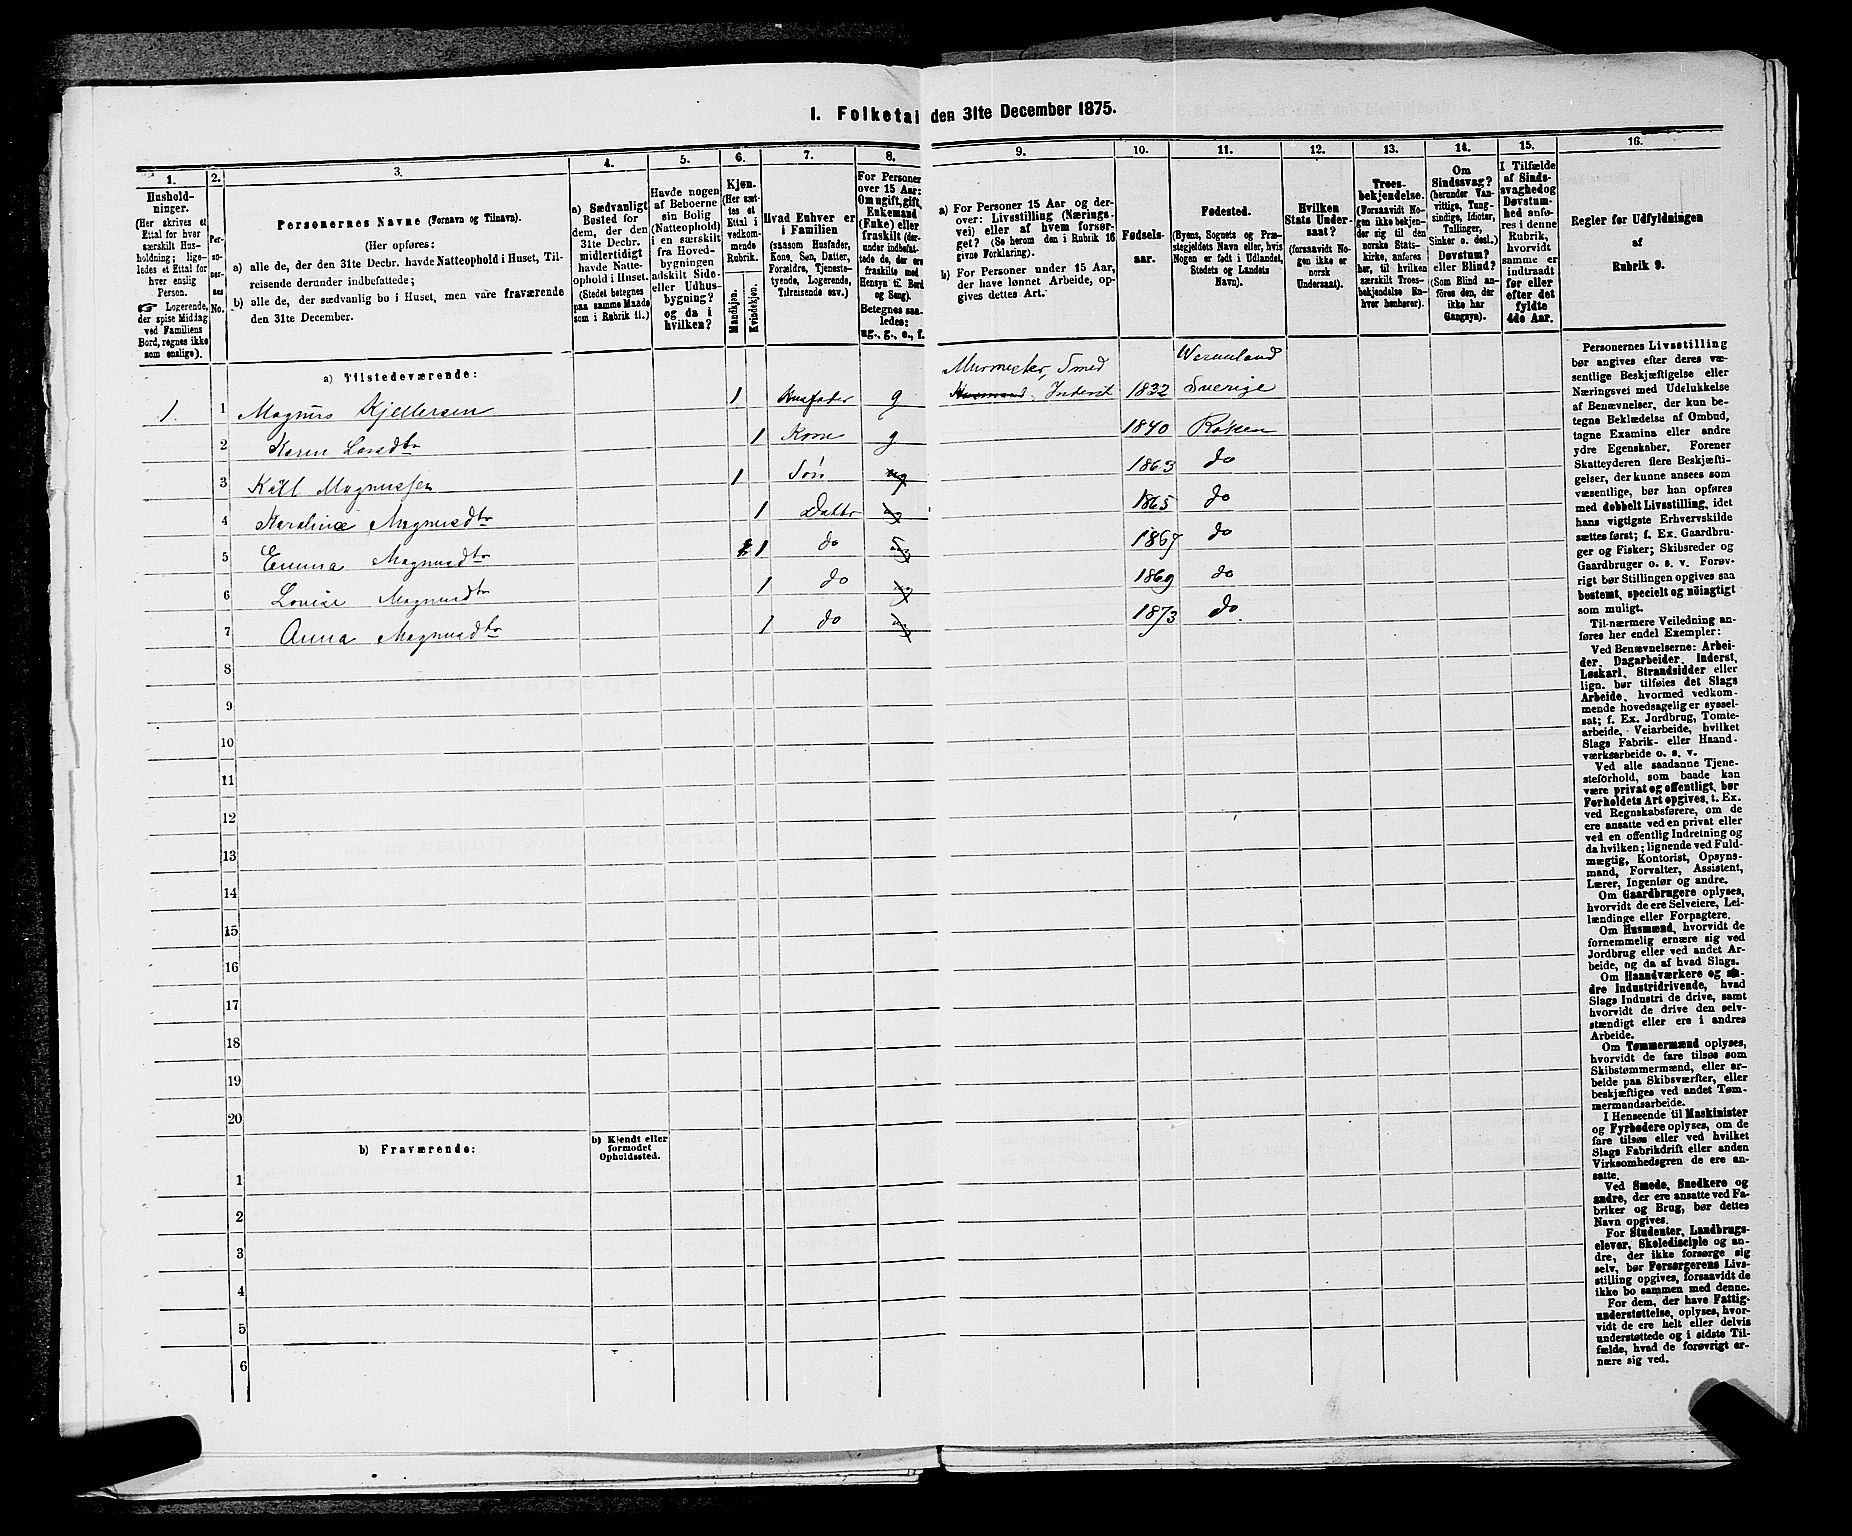 I. Folketal den 31te December 1875.
1.
Hushold-
ninger.
(Her skrives et
Ettal for hver
særskilt Hus-
holdning; lige-
ledes et Ettal for
hver enslig
Person.
☞ Logerende,
der spise Middag
ved Familiens
Bord, regnes ikke
som enslige).
2.
Per-
so-
ner-
nes
No.
3.
Personernes Navne (Fornavn og Tilnavn).
(Her opføres:
a) alle de, der den 31te Decbr. havde Natteophold i Huset, Til-
reisende derunder indbefattede;
b) alle de, der sædvanlig bo i Huset, men vare fraværende
den 31te December.
4.
a) Sædvanligt
Bosted for
dem, der den
31te Decbr.
midlertidigt
havde Natte-
ophold i Huset.
(Stedet betegnes
paa samme Maade
som i Rubrik 11.)
5.
Havde nogen
af Beboerne
sin Bolig
(Natteophold)
i en særskilt
fra Hoved-
bygningen
adskilt Side-
eller Udhus-
bygning?
og da i
hvilken?
6.
Kjøn.
(Her sæt-
tes et
Ettal i
vedkom-
mende
Rubrik.
Mandkjøn.
Kvindekjøn.
7.
Hvad Enhver er
i Familien
(saasom Husfader,
Kone, Søn, Datter,
Forældre, Tjeneste-
tyende, Logerende,
Tilreisende osv.)
8.
For Personer
over 15 Aar:
Om ugift, gift,
Enkemand
(Enke) eller
fraskilt (der-
under indbefat-
tede de, der ere
fraskilte med
Hensyn til Bord
og Seng).
Betegnes saa-
ledes:
ug., g., e., f.
9.
a) For Personer 15 Aar og der-
over: Livsstilling (Nærings-
vei) eller af hvem forsør-
get? (Se herom den i Rubrik 16
givne Forklaring).
b) For Personer under 15 Aar,
der have lønnet Arbeide, op-
gives dettes Art.
10.
Fødsels-
aar.
11.
Fødested.
(Byens, Sognets og Præ-
stegjeldets Navn eller, hvis
Nogen er født i Udlandet,
Stedets og Landets
Navn).
12.
Hvilken
Stats Under-
saat?
(forsaavidt No-
gen ikke er
norsk
Undersaat).
13.
Troes-
bekjendelse.
(Forsaavidt No-
gen ikke bekjen-
der sig til den
norske Stats-
kirke, anføres
her, til hvilken
særskilt Troes-
bekjendelse En-
hver henhører).
14.
Om
Sindssvag?
(herunder Van-
vittige, Tung-
sindige, Idioter,
Tullinger,
Sinker o. desl.)
Døvstum?
eller Blind?
(Som Blind an-
føres den, der
ikke har
Gangsyn).
15.
I Tilfælde
af Sinds-
svaghed og
Døvstum-
hed anfø-
res i denne
Rubrik,
hvorvidt
samme er
indtraadt
før eller
efter det
fyldte
4de Aar.
16.
Regler for Udfyldningen
af
Rubrik 9.
a) Tilstedeværende:
1. 1 Magnus Kjellersen 1 Husfader g Murmester, Smed Husmand, Inderst 1832 Wermland Sverige
2 Karen Larsdtr 1 Kone g 1840 Røken
3 Karl Magnussen 1 Søn ug 1863 do
4 Karoline Magnusdtr 1 Datter ug 1865 do
5 Emma Magnusdtr 1 do ug 1867 do
6 Lovise Magnusdtr 1 do ug 1869 do
7 Anna Magnusdtr 1 do ug 1873 do.
8
9
10
11
12
13
14
15
16
17
18
19
20
b) Fraværende:
b) Kjendt eller
formodet
Opholdssted.
1
2
3
4
5
6
Personernes Livsstilling
bør angives efter deres væ-
sentlige Beskjæftigelse eller
Næringsvei med Udelukkelse
af Benævnelser, der kun be-
tegne Beklædelse af Ombud,
tagne Examina eller andre
ydre Egenskaber. Forener
Skatteyderen flere Beskjæfti-
gelser, der kunne ansees som
væsentlige, bør han opføres
med dobbelt Livsstilling, idet
hans vigtigste Erhvervskilde
sættes først; f. Ex. Gaardbru-
ger og Fisker; Skibsreder og
Gaardbruger o. s. v. Forøv-
rigt bør Stillingen opgives saa
bestemt, specielt og nøiagtigt
som muligt.
Til nærmere Veiledning an-
føres her endel Exempler:
Ved Benævnelserne: Arbei-
der, Dagarbeider, Inderst,
Løskarl, Strandsidder eller
lign. bør tilføies det Slags
Arbeide, hvormed vedkom-
mende hovedsagelig er syssel-
sat; f. Ex. Jordbrug, Tomte-
arbeide, Veiarbeide, hvilket
Slags Fabrik- eller Haand-
værksarbeide o. s. v.
Ved alle saadanne Tjene-
steforhold, som baade kan
være privat og offentligt, bør
Forholdets Art opgives, t. Ex.
ved Regnskabsførere, om de
ere ansatte ved en privat eller
ved en offentlig Indretning og
da hvilken; lignende ved Fuld-
mægtig, Kontorist, Opsyns-
mand, Forvalter, Assistent,
Lærer, Ingeniør og andre.
Om Gaardbrugere oplyses,
hvorvidt de ere Selveiere, Lei-
lændinge eller Forpagtere.
Om Husmænd, hvorvidt de
fornemmelig ernære sig ved
Jordbrug eller ved andet Ar-
beide, og da af hvad Slags.
Om Haandværkere og an-
dre Industridrivende, hvad
Slags Industri de drive, samt
hvorvidt de drive den selv-
stændigt eller ere i andres
Arbeide.
Om Tømmermænd oplyses,
hvorvidt de fare tilsøs som
Skibstømmermænd, eller ar-
beide paa Skibsværfter, eller
beskjæftiges ved andet Tøm-
mermandsarbeide.
I Henseende til Maskinister
og Fyrbødere oplyses, om de
fare tilsøs eller ved hvilket
Slags Fabrikdrift eller anden
Virksomhedsgren de ere an-
satte.
Ved Smede, Snedkere og
andre, der ere ansatte ved Fa-
briker og Brug, bør dettes
Navn opgives.
For Studenter, Landbrugs-
elever, Skoledisciple og an-
dre, der ikke forsørge sig
selv, bør Forsørgerens Livs-
stilling opgives, forsaavidt de
ikke bo sammen med denne.
For dem, der have Fattig-
understøttelse, oplyses, hvor-
vidt de ere helt eller delvis
understøttede og i sidste Til-
fælde, hvad de forøvrigt er-
nære sig ved.